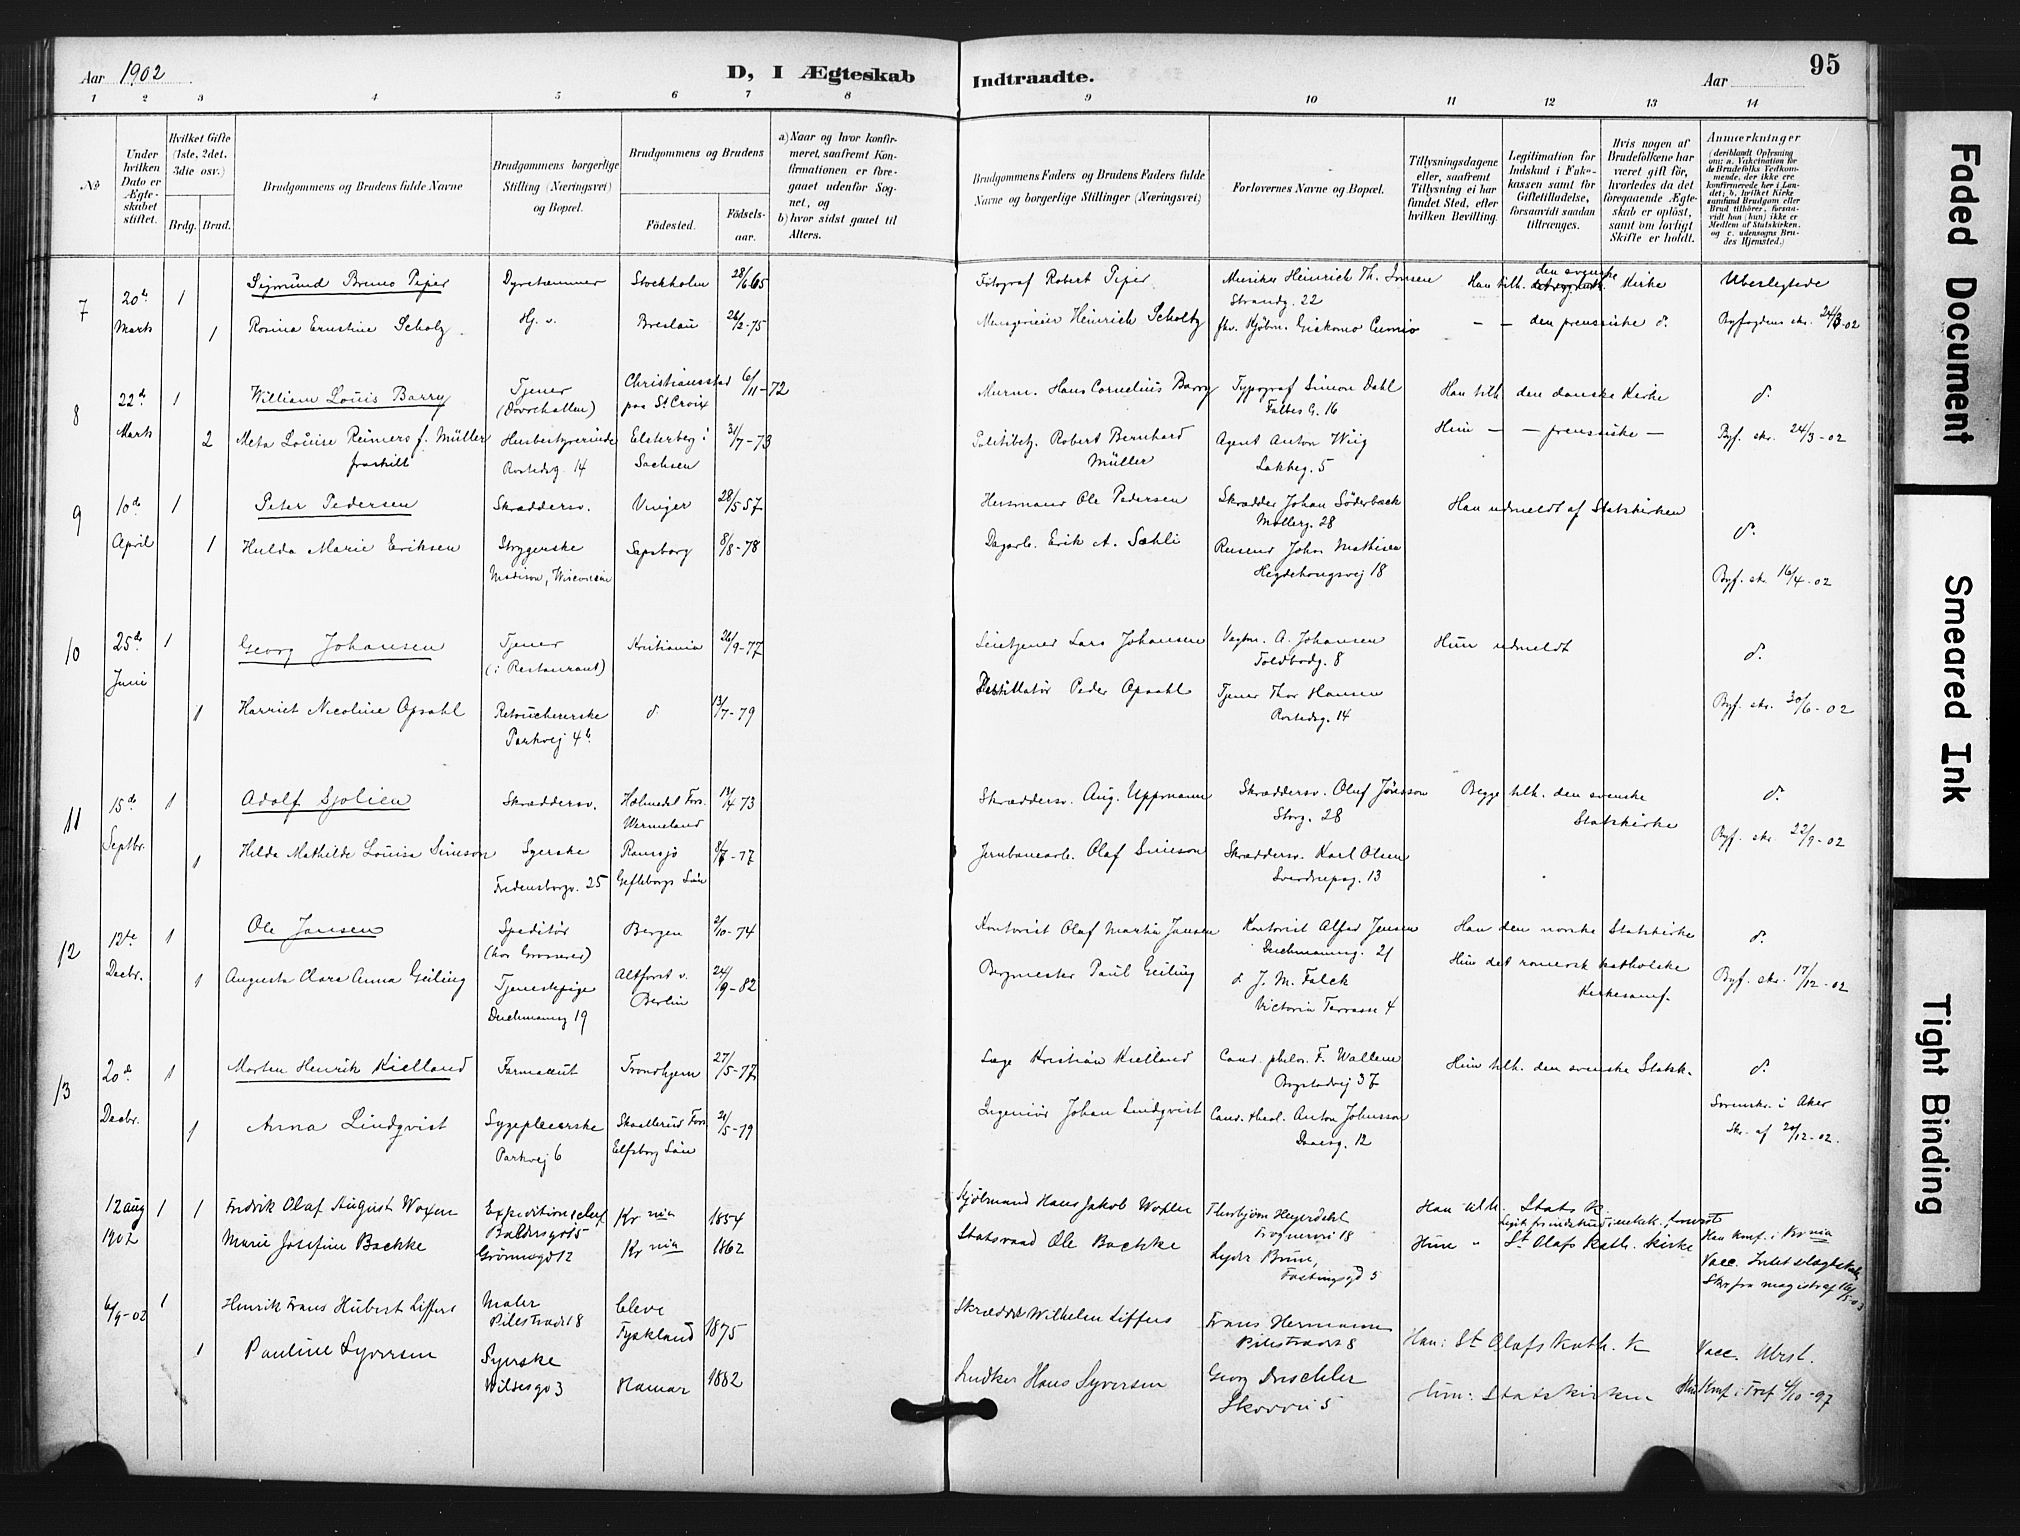 Aar 1902
D, I Ægteskab
Indtraadte.
Aar
95
1 2 3 4 5 6 7 8 9 10 11 12 13 14
No
Under hvilken Dato er Ægteskabet stiftet.
Hvilket Gifte (1ste, 2det, 3die osv.)
Brdg. Brud.
Brudgommens og Brudens fulde Navne
Brudgommens borgerlige Stilling (Næringsvei) og Bopæl.
Brudgommens og Brudens
Fødested.
Fødselsaar.
a) Naar og hvor konfirmeret, saafremt Konfirmationen er foregaaet udenfor Sognet, og
b) hvor sidst gaaet til Alters.
Brudgommens Faders og Brudens Faders fulde Navne og borgerlige Stillinger (Næringsvei)
Forlovernes Navne og Bopæl.
Tillysningsdagene eller, saafremt Tillysning ei har fundet Sted, efter hvilken Bevilling.
Legitimation for Indskud i Enkekassen samt for Giftetilladelse, forsaavidt saadan tiltrænges.
Hvis nogen af Brudefolkene har været gift før, hvorledes da det foregaaende Ægteskab er opløst, samt om lovligt Skifte er holdt.
Anmærkninger
(deriblandt Oplysning om: a. Vakcination for de Brudefolks Vedkommende, der ikke ere konfirmerede her i Landet; b. hvilket Kirkesamfund Brudgom eller Brud tilhører, forsaavidt han (hun) ikke er Medlem af Statskirken, og c. udensogns Brudes Hjemsted.)
7 20de Marts 1 Sigmund Bruno Pijer Dyretæmmer Stockholm 28/6 65 Fotograf Robert Pijer Musiker Heinrich Th. Strandg. 22 Han tilh. den svenske Kirke Ubeslegtede
1 Rosina Ernstine Scholz Hj. v. Breslau 26/2-75 Menagerieier Heinrich Scholtz fhv. Kjøbm. - - den preussiske d. Byfogdens skr. 24/3-02
8 22de Marts 1 William Louis Barry Tjener (Dovrehallen) Christianssted paa St Croix 6/11-72 Murm. Hans Cornelius Barry Typograf Simon Dahl Falbes G. 16 Han tilh. den danske Kirke d.
2 Meta Louise Reimers f. Müller fraskilt Husbestyrerinde Rostedsg. 14 Elsterberg i Sachsen 31/7-73 Politibetj. Robert Bernhard Müller Agent Anton Wiig Lakkeg. 5 Hun - - preussiske - Byf. skr. 24/3-02
9 10de April 1 Peter Pedersen Skræddersv. Vinger 28/5 57 Husmand Ole Pedersen Skrædder Johan Söderback Møllerg. 28 Han udmeldt af Statskirken d.
1 Hulda Marie Eriksen Strygerske Madison, Wisconsin Sapsborg 8/8-78 Dagarb. Erik A. Sæhli Johs. Mathisen Hegdehougsvej 18 Byf. skr. 16/4-02
10 25de Juni 1 Georg Johansen Tjener (i Restaurant) Kristiania 26/9-77 Lars Johansen A. Johansen Toldbodg. 8 Hun udmeldt d.
1 Harriet Nicoline Opsahl Retoucherske Parkvej 4b d 13/7-79 Destillatør Peder Opsahl Tjener Thor Hansen Rostedsg. 14 Byf. skr. 30/6-02
11 15de Septbr. 1 Adolf Sjolien Skræddersv. Holmedal Fors. Wermeland 4 73 Skræddersv. Aug. Uppmann Skræddersv. Oluf Jönsson Storg. 28 Begge tilh. den svenske Statskirke d.
1 Hilda Mathilde Louisa Simson Syerske Fredensborgv. 25 Ramsjö Gefleborgs Län 8/7-77 Jernbanearb. Olaf Simson Skræddersv. Karl Olsen Sverdrupsg. 13 Byf. skr 22/9-02
12 12te Decbr. 1 Ole Jansen Speditør (hos Grosserer) Bergen 2/10-74 Kontorist Olaf Martin Jansen Kontorist Alfred Jensen Deichmansg. 21 Han den norske Statskirke d.
1 Augusta Clara Anna Geiling Tjenestepige Deichmansg 19 Altforst v. Berlin 24/9-82 Bergmester Paul Geiling d. J. M. Falck Victoria Terrasse 4 Hun det romersk katholske Kirkesamf. Byf. skr. 17/12-02
13 20de Decbr. 1 Morten Henrik Kielland Farmaceut Trondhjem 27/5-77 Læge Kristian Kielland Cand. philos. F. Wallem Bogstadvej 37 Hun tilh. den svenske Statsk. d.
1 Anna Lindqvist Sygepleierske Parkvej 6 Skallerud Fors. Elfsborg Län 21/5-79 Ingeniör Johan Lindqvist Cand. theol. Anton Johnsson Daasg. 12 Sorenskr. i Aker Skr. af 20/12-02.
12 aug 1902 1 1 Fredrik Olaf August Woxen Expeditionschef Baldersgd 5 Kr nia 1854 Kjøbmand Hans Jakob Woxen Thorbjørn Heyerdahl Frognervei 18 Han tilh. Stats K Han konf. i Kr nia
Marie Josefine Bachke Grønnegd 12 Kr nia 1862 Statsraad Ole Bachke Lyder Brun, Fastingsgd 5 Hun " St Olafs Kath. Kirke Vacc.
6/9-02 1 Henrik Frans Hubert Liffers Maler Pilestrædet 8 Cleve Tyskland 1875 Skrædder Wilhelm Liffers Frans Hermanns Pilestrædet 8 Han: St Olafs Kath. K Vacc. Ubesl.
1 Pauline Syversen Syerske Wildesgd 3 Hamar 1882 Snedker Hans Syversen Georg Drischler Skovvei 5 Hun: Statskirken Hun Konf. i Tref. 4/10-97
Faded Document
Smeared Ink
Tight Binding